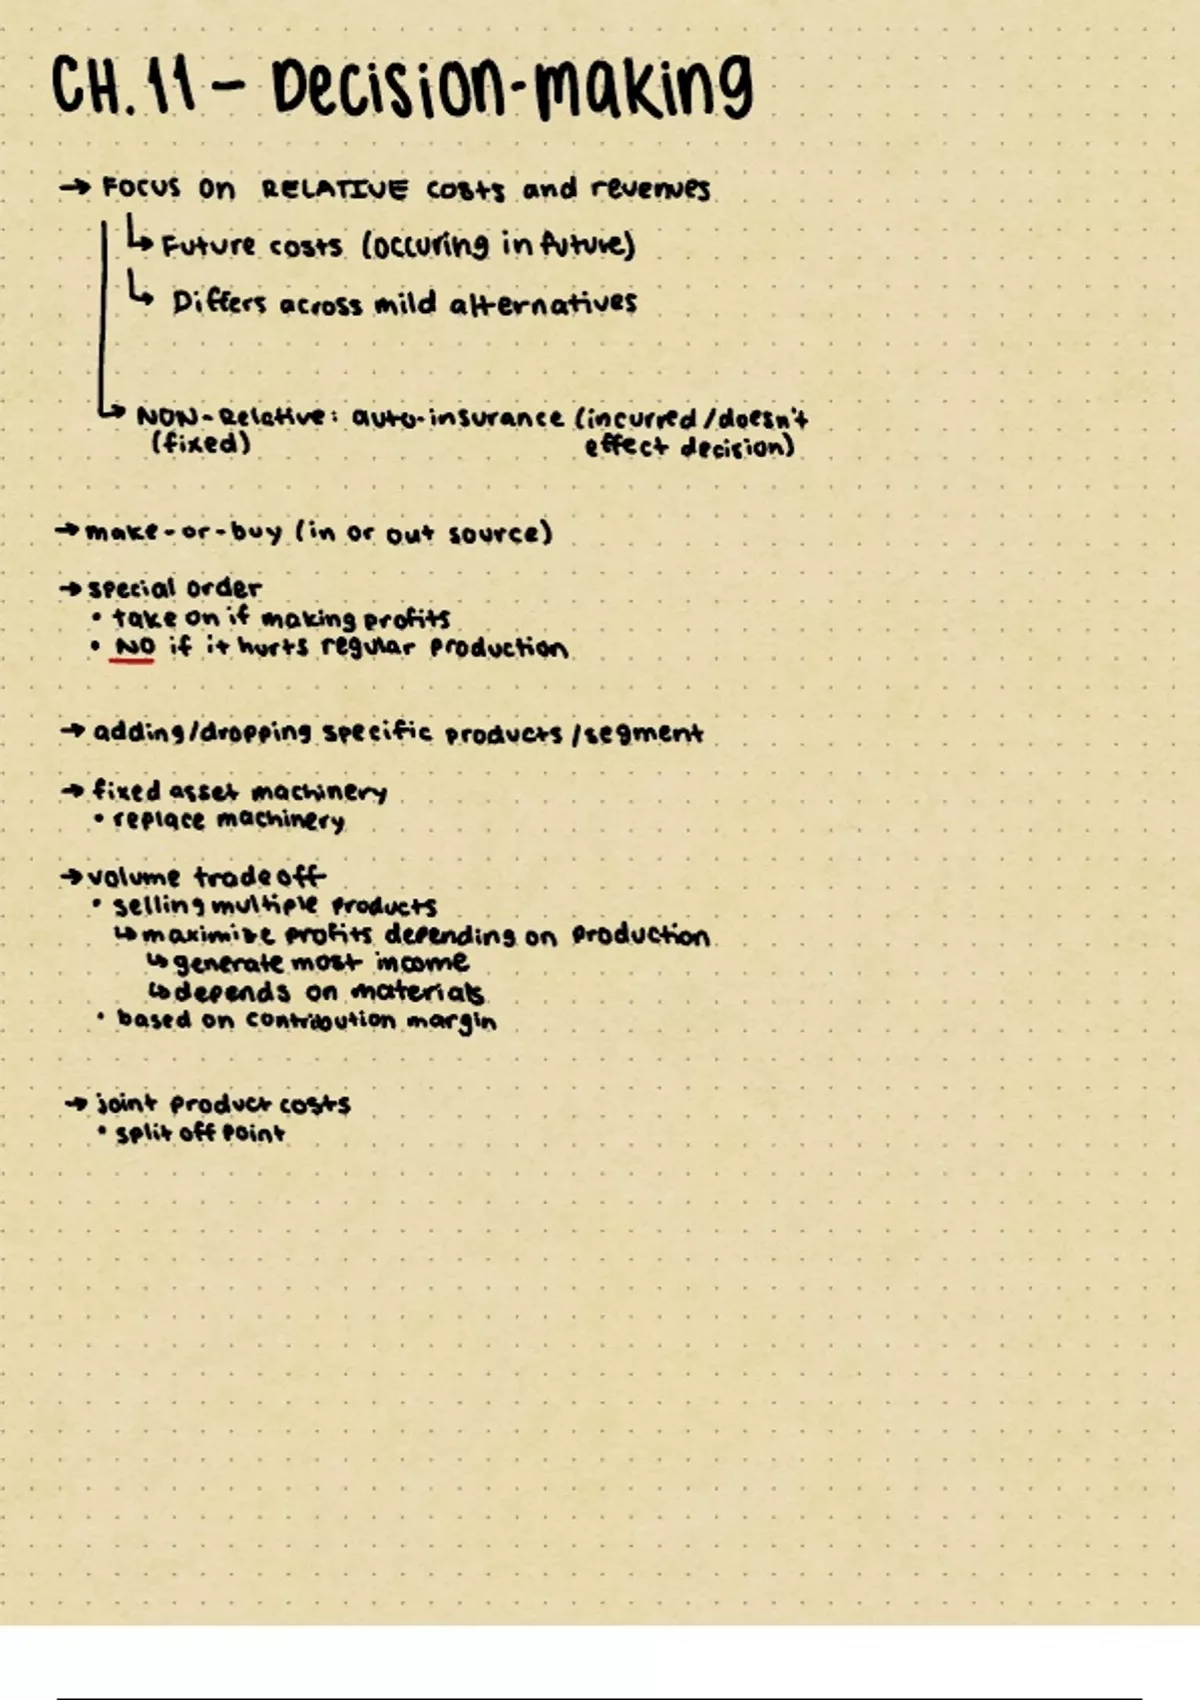 CH. 11 - Decision-making
→ Focus on RELATIVE costs and revenues
↳ Future costs (occuring in future)
↳ Differs across mild alternatives
↳ NON-Relative: auto-insurance (incurred/doesn't
(fixed) effect decision)
→ make-or-buy (in or out source)
→ special order
• take on if making profits
• NO if it hurts regular production
→ adding/dropping specific products/segment
→ fixed asset machinery
• replace machinery
→ volume tradeoff
• selling multiple products
↳ maximize profits depending on production
↳ generate most income
↳ depends on materials
• based on contribution margin
→ joint product costs
• split off point